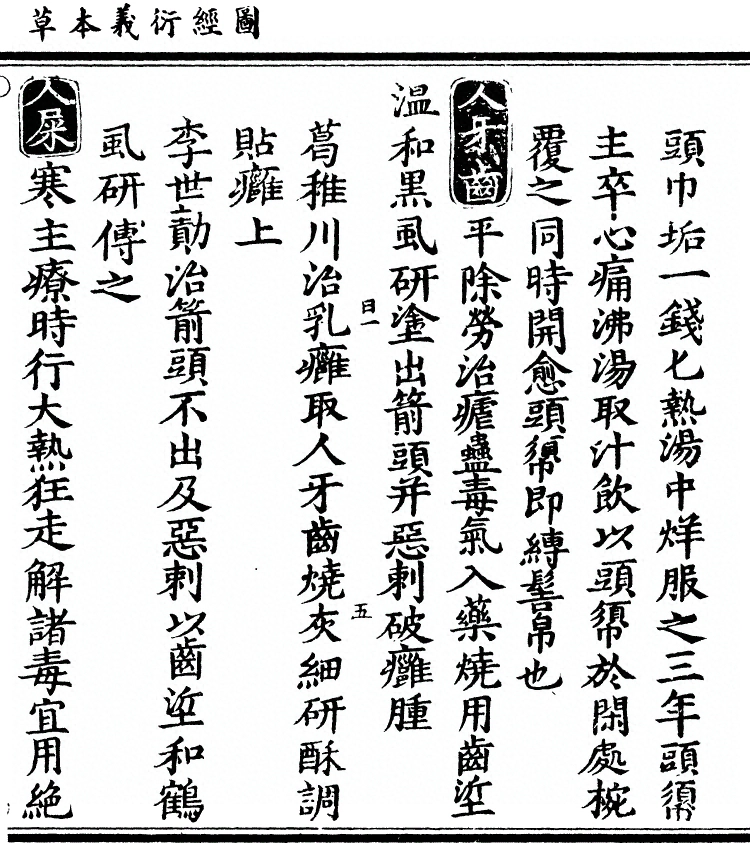 圖經衍義本草
頭巾垢一錢匕熱湯中烊服之三年頭𢄼
主卒心痛沸湯取汁飲以頭𢄼於閑處椀
覆之同時開愈頭𢄼即縛髻帛也
人牙齒平除勞治瘧蠱毒氣入藥燒用齒垽
溫和黑虱研塗出箭頭并惡刺破癰腫
葛稚川治乳癰取人牙齒燒灰細研酥調
貼癰上
李世勣治箭頭不出及惡刺以齒垽和鶴
虱研傅之
人屎寒主療時行大熱狂走解諸毒宜用絶
日一
五